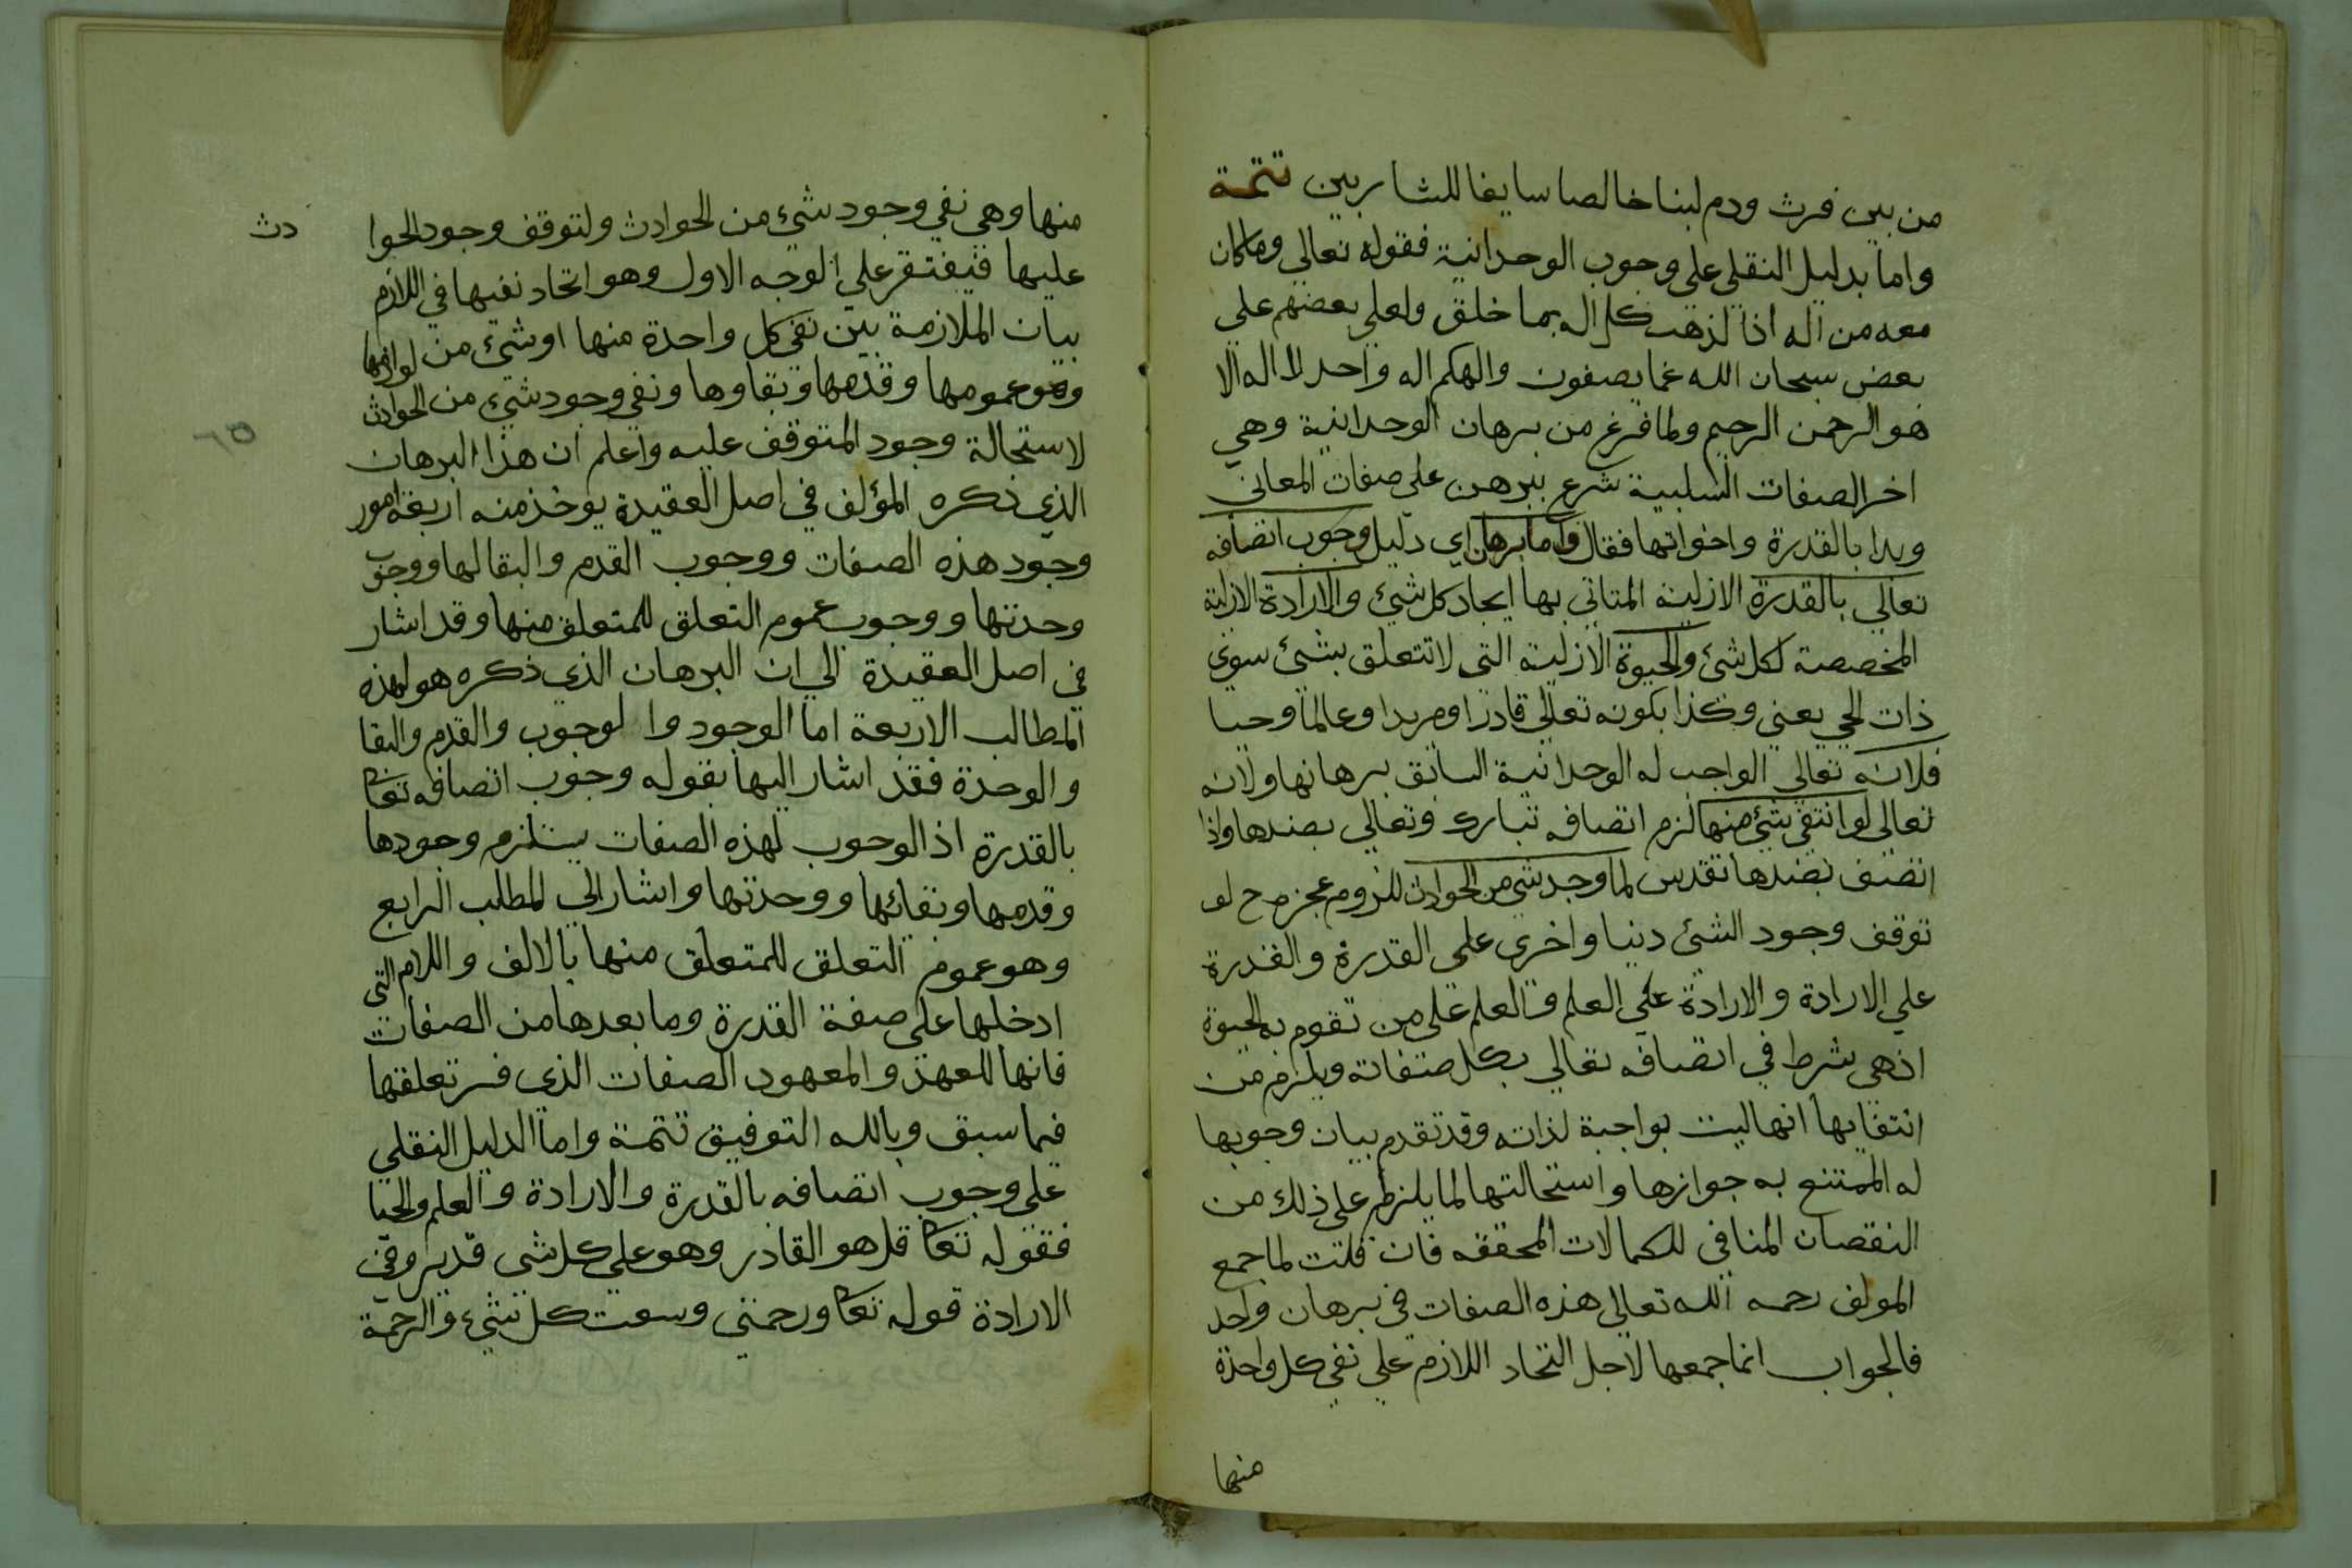 من بين فرث ودم لبنا خالصا سايغا للشاربين تتمة
واما بدليل النقلي على وجوب الوحدانية فقوله تعالي وماكان
معه من اله اذا لذهب كل اله بما خلق ولعلي بعضهم علي
بعض سبحان الله عما يصفون والهكم اله واحد لا اله الا
هو الرحمن الرحيم ولما فرغ من برهان الوحدانية وهي
اخر الصفات السلبية شرع يبرهن على صفات المعاني
وبدا بالقدرة واخواتها فقال واما برهان اي دليل وجوب اتصافه
تعالي بالقدرة الازلية المتاتي بها ايجاد كل شيء والارادة الازلية
المخصصة لكل شئ والحيوة الازلية التي لا تتعلق بشئ سوي
ذات الحي يعني وكذا بكونه تعالي قادرا ومريدا وعالما وحيا
فلانه تعالي الواجب له الوحدانية السابق برهانها ولانه
تعالى لو انتفي شئ منها لزم اتصافه تبارك وتعالي بضدها واذا
اتصف بضدها تقدس لما وجد شي من الحوادث للزوم عجزه ح لو
توقف وجود الشئ دنيا واخرى على القدرة والقدرة
علي الارادة والارادة علي العلم والعلم على من تقوم به الحيوة
اذ هي شرط في اتصافه تعالي بكل صفاته ويلزم من
انتفايها انها ليت بواجبة لذاته وقد تقدم بيان وجوبها
له الممتنع به جوازها واستحالتها لما يلزم على ذلك من
النقصان المنافي للكمالات المحققه فان قلت لما جمع
المولف رحمه الله تعالى هذه الصفات في برهان واحد
فالجواب انما جمعها لاجل اتحاد اللازم علي نفي كل واحدة
منها
منها وهي نفي وجود شيء من الحوادث ولتوقف وجود الحوا
دث
عليها فيفتقر علي الوجه الاول وهو اتحاد نفيها في اللازم
بيان الملازمة بين نفي كل واحدة منها او شئ من لوازمها
وهو عمومها وقدمها وبقاوها ونفي وجود شيء من الحوادث
لاستحالة وجود المتوقف عليه واعلم ان هذا البرهان
الذي ذكره المؤلف في اصل العقيدة يوخذ منه اربعة امور
وجود هذه الصفات ووجوب القدم والبقا لها ووجوب
وحدتها ووجوب عموم التعلق للمتعلق منها وقد اشار
في اصل العقيدة الي ان البرهان الذي ذكره هو لهذه
المطالب الاربعة اما الوجود وا لوجوب والقدم والبقا
والوحدة فقد اشار اليها بقوله وجوب اتصافه تعا
بالقدرة اذ الوجوب لهذه الصفات يستلزم وجودها
وقدمها وبقائها ووحدتها واشار الي المطلب الرابع
وهو عموم التعلق للمتعلق منها بالالف واللام التي
ادخلها على صفة القدرة وما بعدها من الصفات
فانها للعهد والمعهود الصفات الذي فسر تعلقها
فيما سبق وبالله التوفيق تتمة واما الدليل النقلي
على وجوب اتصافه بالقدرة والارادة والعلم والحيا
فقوله تعا قل هو القادر وهو علي كل شي قدير وفي
الارادة قوله تعا ورحمتي وسعت كل شيء والرحمة